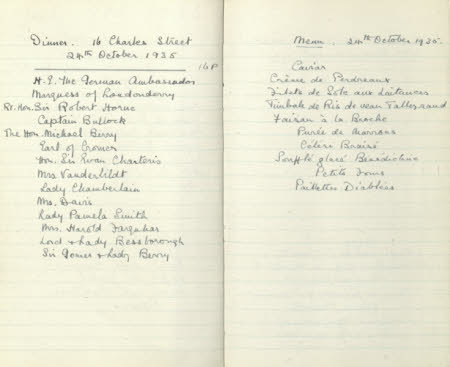 Dinner. 16 Charles Street
24th October 1935
16P
H.E. The German Ambassador
Marquess of Londonderry
Rt. Hon. Sir Robert Horne
Captain Bullock
The Hon. Michael Berry
Earl of Cromer
Hon. Sir Evan Charteris
Mrs Vanderbildt
Lady Chamberlain
Mrs. Davis
Lady Pamela Smith
Mrs. Harold Farquhar
Lord + Lady Bessborough
Sir Gomer + Lady Berry
Menu. 24th October 1935.
Caviar
Crème de Perdreaux
Filets de Sole aux Laitances
Timbale de Ris de veau Talleyrand
Faisan à la Broche
Purée de marrons
Céleri Braisé
Soufflé glacé Bénédictine
Petits Fours
Paillettes Diablées